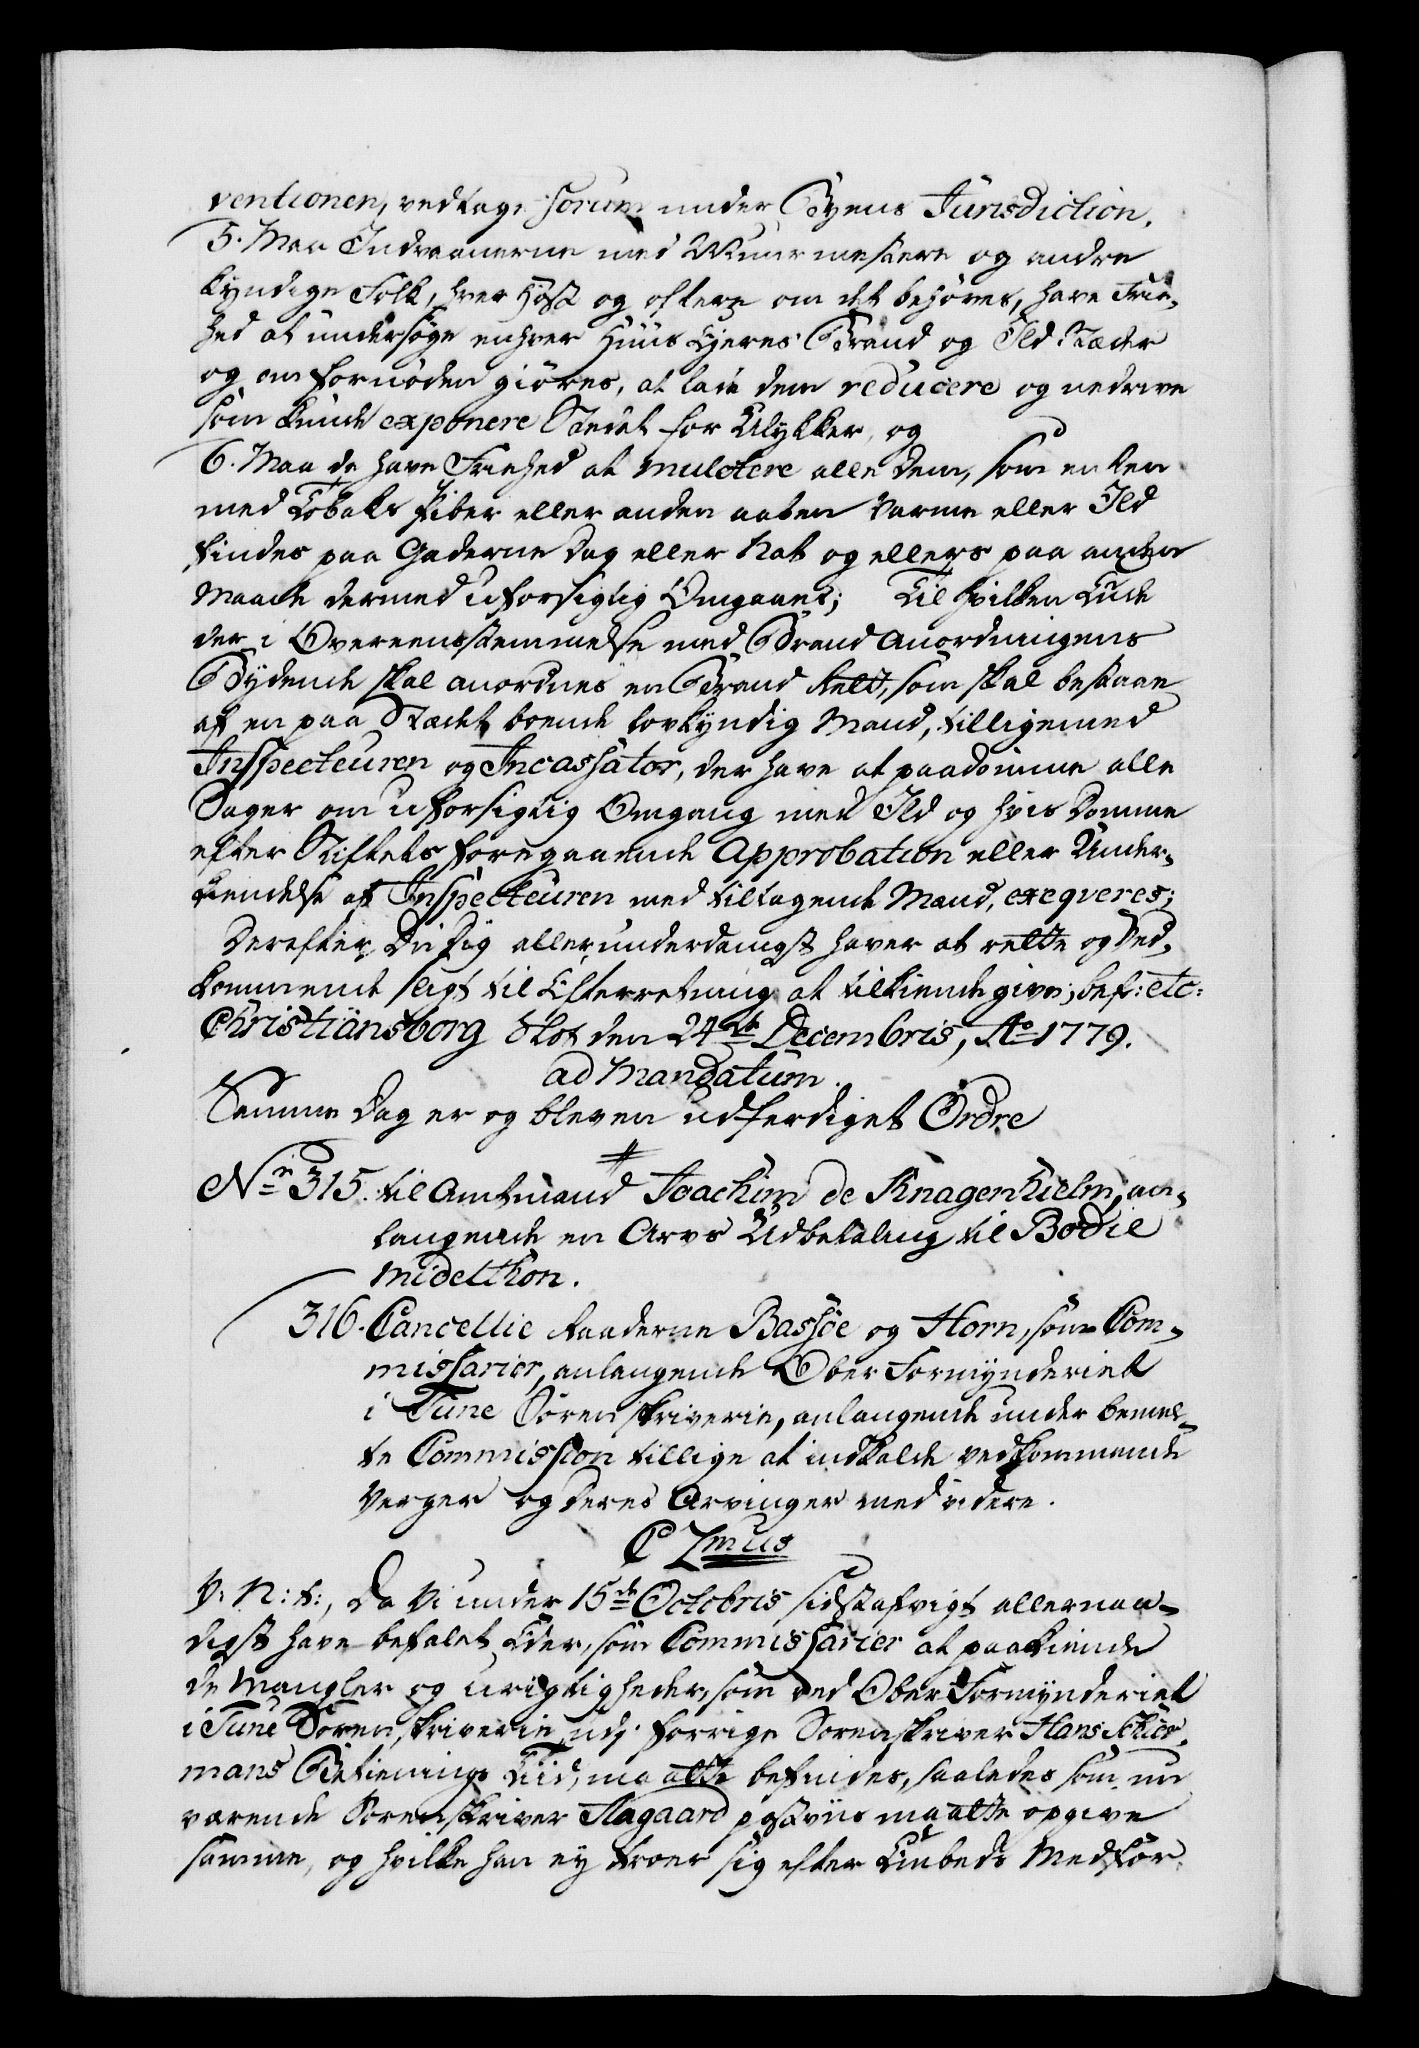 ventionen, vedtage forum under Byens Jurisdiction.
5. Maa Indvaanerne med Muurmestere og andre
kyndige Folk, hver Høst og oftere om det behøves, have Frie-
hed at undersøge enhver Huus Ejeres Brand og Ild Stæder
og om fornøden giøres, at lade dem reducere og nedrive
som kunde exponere Stedet for Ulykker, og
6. Maa de have Friehed at mulctere alle dem, som enten
med Tobaks Piber eller anden aaben Varme eller Ild
findes paa Gaderne Dag eller Nat og ellers paa anden
Maade dermed uforsigtig Omgaaes; Til hvilken Ende
der i Overeensstemmelse med Brand Anordningens
Bydende skal anordnes en Brand Rett, som skal bestaae
af en paa Stædet boende lovkyndig Mand, tilligemed
Inspecteuren og Incassator, der have at paadømme alle
Sager om uforsigtig Omgang med Ild og hvis Domme
efter Stiftets foregaaende Approbation eller Under-
kiendelse af Inspecteuren med tiltagende Mænd, exeqveres;
Derefter Du dig allerunderdanigst haver at rette og Ved-
kommende sligt til Efterretning at tilkiende give; bef: etc:
Christiansborg Slot den 24de Decembris, Ao 1779.
ad Mandatum.
Samme Dag er og bleven udferdiget Ordre
Nr 315. til Amtmand Joachim de Knagenhielm, an-
langende en Arvs Udbetaling til Bodil
Midelthon.
316. Cancellie Raaderne Bassøe og Horn, som Com-
missarier, anlangende Ober Formynderiet
i Tune Sørenskriverie, anlangende under bemel-
te Commission tillige at indkalde vedkommende
Verger og deres Arvinger med videre.
C 7mus
V: N: T:, Da Vi under 15de Octobris sidstafvigt allernaa-
digst have befalet Eder, som Commissarier at paakiende
de Mangler og urigtigheder, som ved Ober Formynderiet
i Tune Sørenskriverie udj forrige Sorenskriver Hans
mans Betienings Tiid, maatte befindes, saaledes som nu
værende Sorenskriver Aagaard pastviis maatte opgive
samme, og hvilke han ey troer sig efter Embeds Medfør